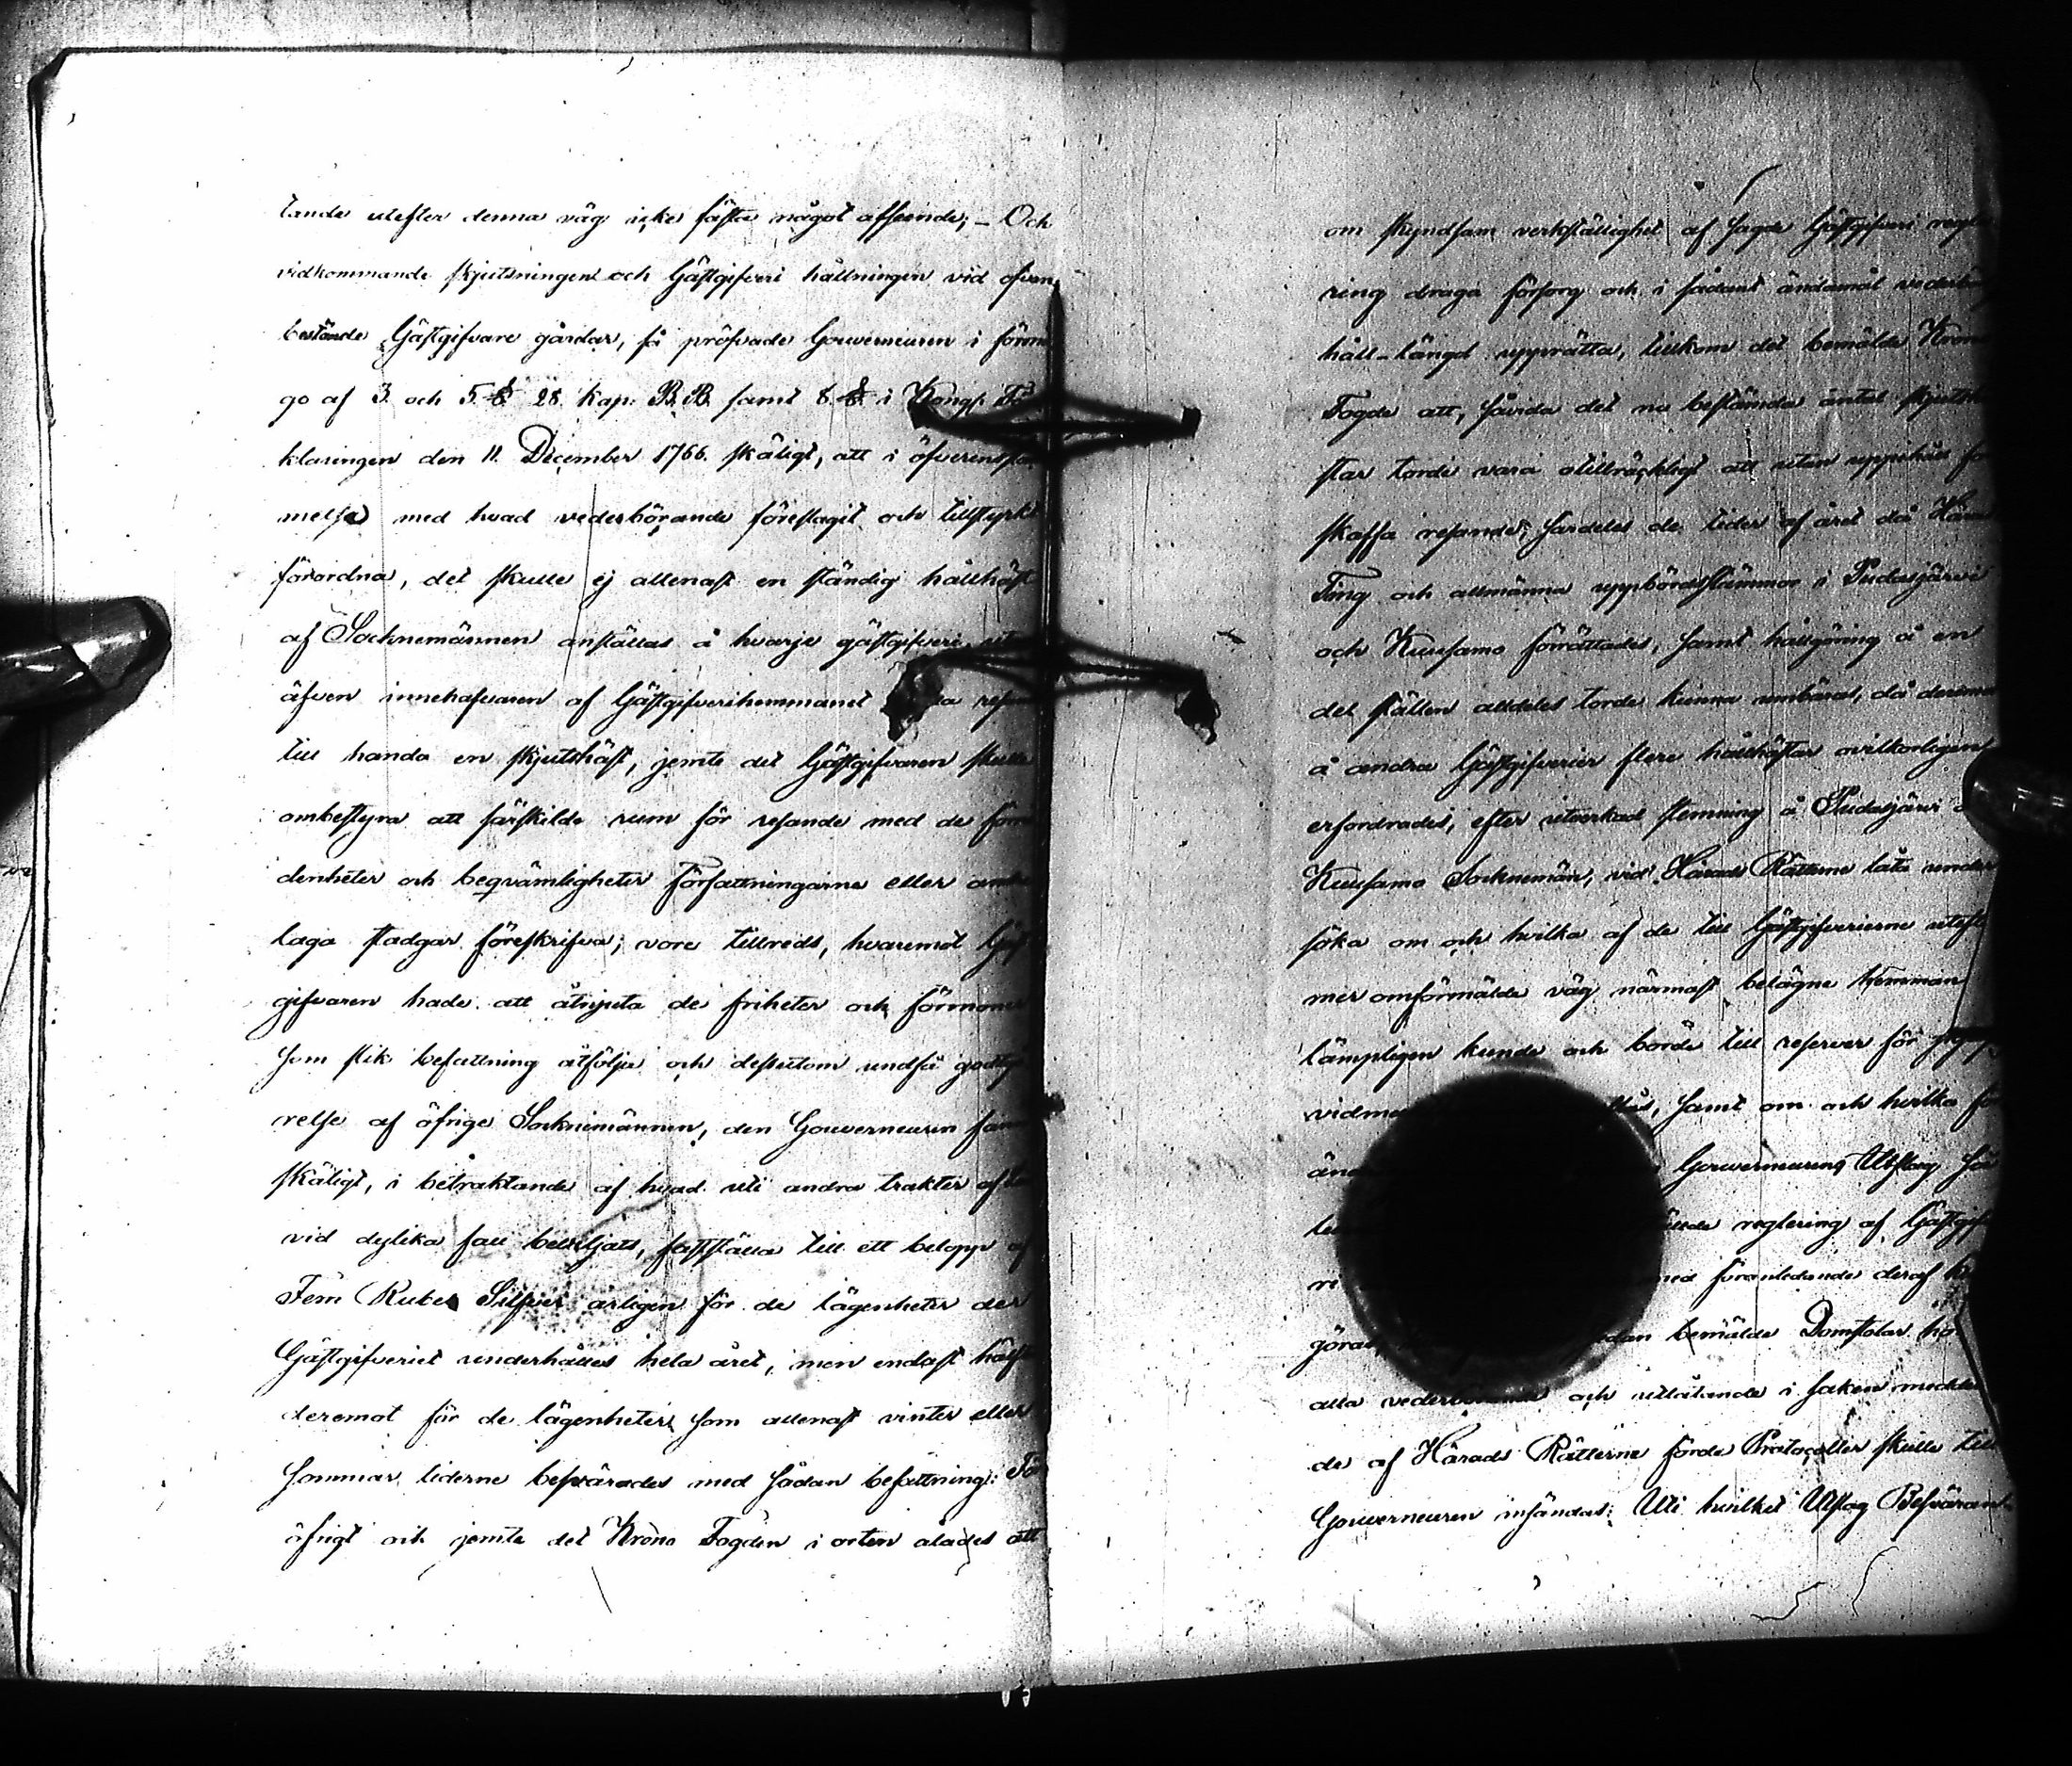 tande utefter denna väg icke fästa något afseende; - Och
vidkommande skjutsningen och Gästgifveri hållningen vid ofvan
bestånde Gästgifvare gårdar, så pröfvade Gouverneuren i förm
go af 3. och 5. §. 28. Kap: B.B. samt 8. §. i Kongl. För
klaringen den 11. December 1766. skäligt, att i öfverensstäm
melse med hvad vederbörande föreslagit och tillstyrkt
förordna, det skulle ej allenast en ständig hållhäst
af Socknemännen anställas å hvarje gästgifveri, utan
äfven innehafvaren af Gästgifverihemmanet
till handa en skjutshäst, jemte det Gästgifvaren skulle
ombestyra att särskilde rum för resande med de
denheter och beqvämligheter Författningarne eller andra
laga stadgar föreskrifva; vore tillreds, hvaremot Gäst
gifvaren hade att åtnjuta de friheter och förmoner
som slik befattning åtfölja och dessutom undfå godtgö
relse af öfrige Socknemännen, den Gouverneuren fann
skäligt, i betraktande af hvad uti andra trakter af
vid dylika fall beviljats, fastställa till ett belopp af
Fem Rubel Silfver årligen för de lägenheter der
Gästgifveriet underhålles hela året, men endast hälf
deremot för de lägenheter som allenast vinter eller
sommar tiderne besvärades med sådan befattning: För
öfrigt och jemte det Krono Fogden i orten ålades att
om skyndsam verkställighet af sagde Gästgifveri regle
ring draga försorg och i sådant ändamål vederbör
håll-längd upprätta, tillkom det bemälde Krono
Fogde att, såvida det nu bestämda antal skjutshä
star torde vara otillräckligt att utan uppehåll fort
skaffa resande, särdeles de tider af året då Härads
Ting och allmänna uppbördsstämmor i Pudasjärvi
och Kuusamo förrättades, samt hållgöring å en
del ställen alldeles torde kunna umbäras, då deremot
å andra Gästgifverier flere hållhästar ovilkorligen
erfordrades, efter utverkad stemning å Pudasjärvi o
Kuusamo Socknemän, vid Härads Rätterne låta under
söka om och hvilka af de till Gästgifverierne utefter
mer omförmälde väg närmast belägne hemman
lämpligen kunde och borde till reserver för
samt om och hvilka för
än Gouverneurens Utslag så
reglering af Gästgif
re med föranledande deraf
göras, bemälde Domstolar hö
alla vederbörande och utlåtande i saken medde
de af Härads Rätterne förde Protocoller skulle till
Gouverneuren insändas: Uti hvilket Utslag Besväran